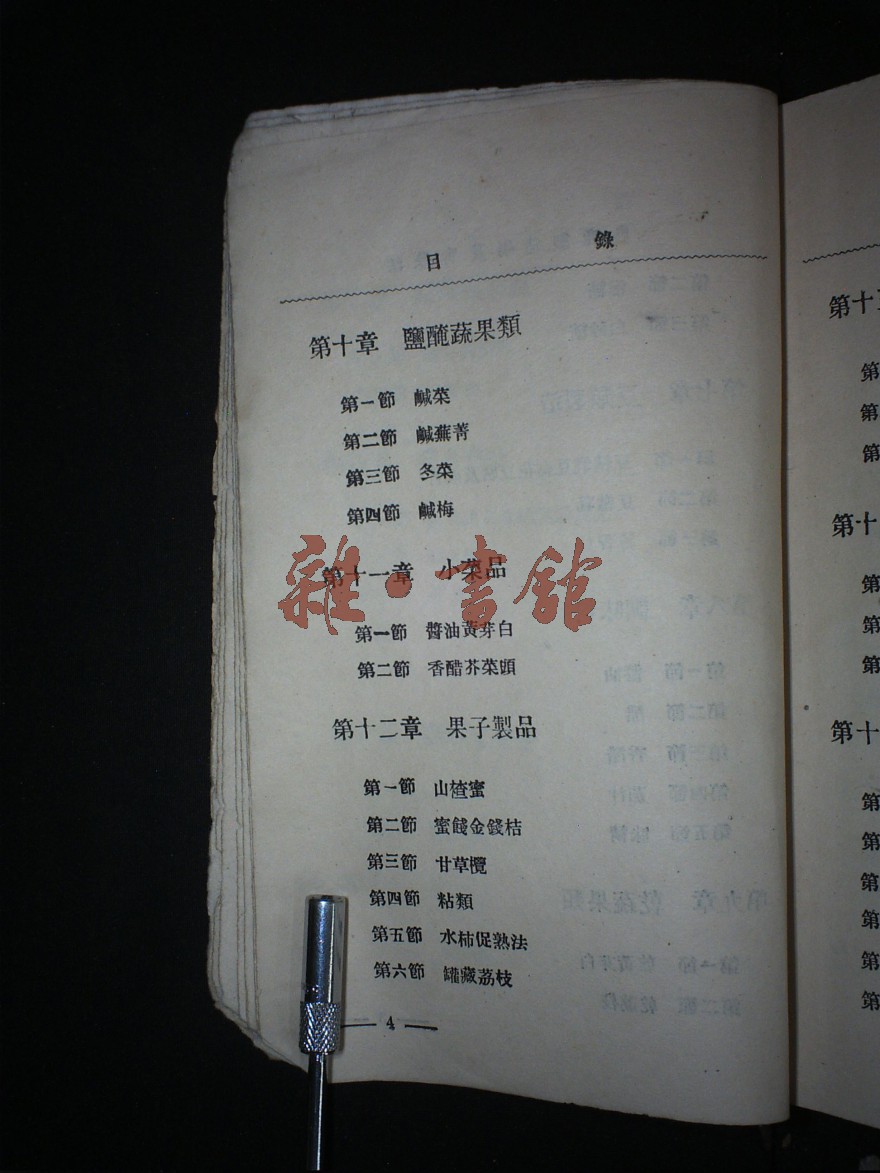 目 錄
第十章 鹽醃蔬果類
第一節 鹹菜
第二節 鹹蕪菁
第三節 冬菜
第四節 鹹梅
第十一章 小菜品
第一節 醬油黃芽白
第二節 香醋芥菜頭
第十二章 果子製品
第一節 山楂蜜
第二節 蜜餞金錢桔
第三節 甘草欖
第四節 粘類
第五節 水柿促熟法
第六節 罐藏荔枝
4
雜·書館
第十
第
第
第
第十
第
第
第
第十
第
第
第
第
第
第